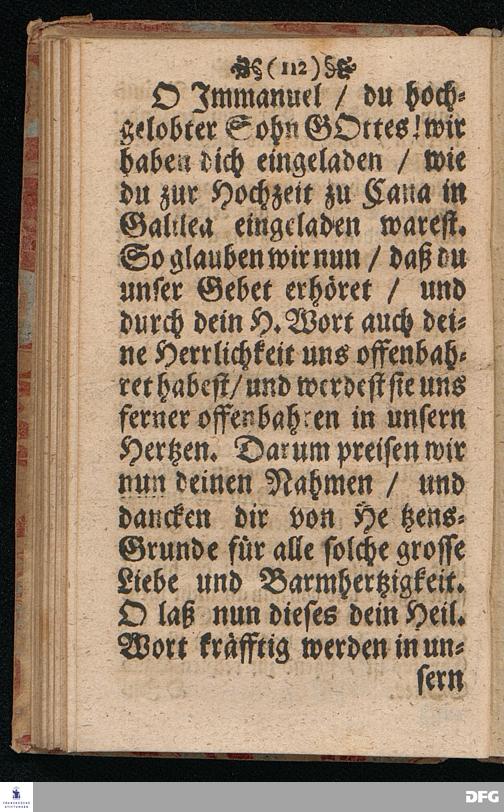 (112)
O Immanuel / du hoch-
gelobter Sohn GOttes! wir
haben dich eingeladen / wie
du zur Hochzeit zu Cana in
Galilea eingeladen warest.
So glauben wir nun / daß du
unser Gebet erhöret / und
durch dein H. Wort auch dei-
ne Herrlichkeit uns offenbah-
ret habest / und werdest sie uns
ferner offenbahren in unsern
Hertzen. Darum preisen wir
nun deinen Nahmen / und
dancken dir von He tzens-
Grunde für alle solche grosse
Liebe und Barmhertzigkeit.
O laß nun dieses dein Heil.
Wort kräfftig werden in un-
sern
DFG